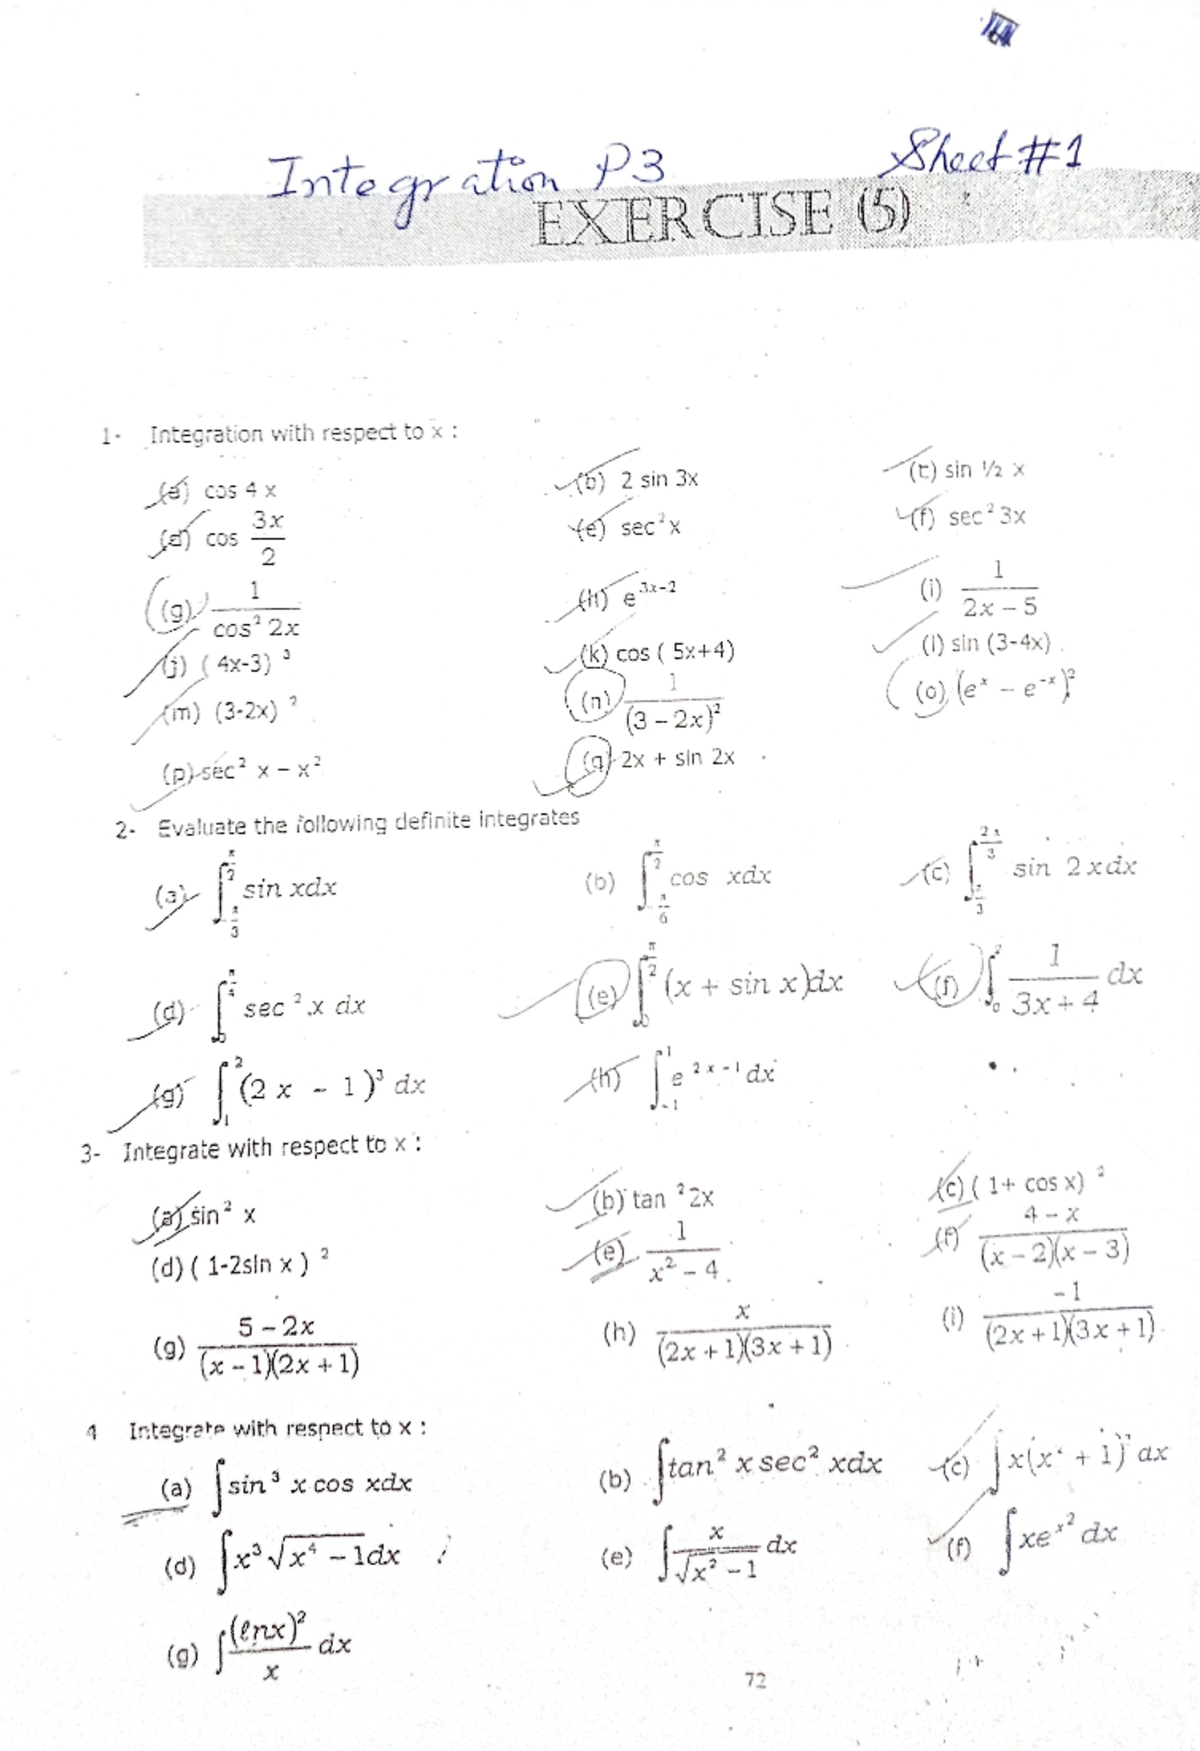 Integration P3 Sheet #1
EXERCISE (5)
1- Integration with respect to x :
(a) cos 4 x (b) 2 sin 3x (c) sin ½ x
(d) cos 3x/2 (e) sec²x (f) sec² 3x
(g) 1/cos² 2x (h) e^(3x-2) (i) 1/(2x – 5)
(j) ( 4x-3) ³ (k) cos ( 5x+4) (l) sin (3-4x)
(m) (3-2x) ² (n) 1/(3 – 2x)² (o) (e^x – e^-x)²
(p) sec² x – x² (q) 2x + sin 2x
2- Evaluate the following definite integrates
(a) ∫_{-π/3}^{π/2} sin xdx (b) ∫_{-π/6}^{π/2} cos xdx (c) ∫_{π/3}^{2π/3} sin 2xdx
(d) ∫_0^{π/4} sec ² x dx (e) ∫_0^{π/2} (x + sin x)dx (f) ∫_0^2 1/(3x + 4) dx
(g) ∫_1^2 (2 x - 1)³ dx (h) ∫_{-1}^1 e^(2x-1) dx
3- Integrate with respect to x :
(a) sin² x (b) tan ²2x (c) ( 1+ cos x) ²
(d) ( 1-2sin x ) ² (e) 1/(x² – 4) (f) (4 – x)/((x – 2)(x – 3))
(g) (5 – 2x)/((x – 1)(2x + 1)) (h) x/((2x + 1)(3x + 1)) (i) -1/((2x + 1)(3x + 1))
4 Integrate with respect to x :
(a) ∫sin ³ x cos xdx (b) ∫tan² x sec² xdx (c)
(d) ∫x³ √(x⁴ – 1)dx (e) ∫x/√(x² – 1) dx (f) ∫xe^(x²) dx
(g) ∫(ℓnx)²/x dx
72